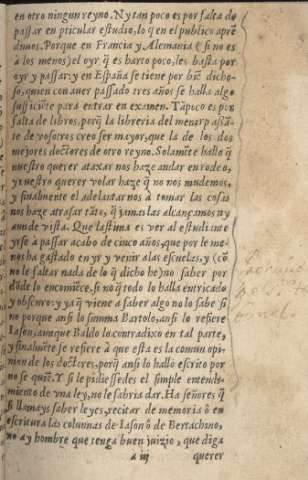 en otro ningun reyno. Ny tan poco es por falta de
passar en pticular estudio, lo q̃ en el publico aprẽ
dimos. Porque en Francia y Alemania (si no es
a los menos) el oyr, q̃ es harto poco, les basta por
oyr y passar: y en España se tiene por biẽ dicho-
so, quien con auer passado tres años se halla algo
sufficiẽte para entrar en examen. Tãpoco es por
falta de libros, porq̃ la libreria del menor passã-
te de vosotros creo ser mayor, que la de los dos
mejores doctores de otro reyno. Solamẽte hallo q̃
nuestro querer ataxar nos haze andar en rodeo,
y nuestro querer volar haze q̃ no nos mudemos,
y finalmente el adelantarnos a tomar las cosas
nos haze atrasar tãto, q̃ jamas las alcançamos ny
aun de vista. Que lastima es ver al estudiante
yrse a passar acabo de cinco años, que por lo me-
nos ha gastado en yr y venir a las escuelas, y (cõ
no le faltar nada de lo q̃ dicho he) no saber por
dõde lo encomiẽce, si no q̃ todo lo halla entricado
y obscuro: y ya q̃ viene a saber algo no lo sabe si
no porque ansi lo summa Bartolo, ansi lo refiere
Iason, aunque Baldo lo contradixo en tal parte,
y finalmẽte se refiere à que esta es la comun opi-
nion de los doctores, porq̃ ansi lo hallo escrito por
no se quiẽ. Y si le pidiessedes el simple entendi-
miento de vna ley, no le sabria dar. Ha señores q̃
si llamays saber leyes, recitar de memoria ò en
escritura las colunnas de Iason ò de Bertachino,
no ay hombre que tenga buen juizio, que diga
a iij querer